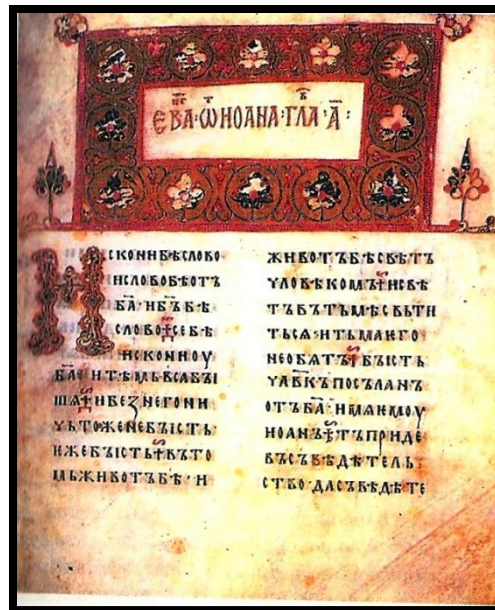 ЕВА·ѠИОАНА·ГЛА·А҃:
ИСКОНИБѢСЛОВО·
ИСЛОВОБѢОТЪ
БА҃·ИБЪ҃БѢ
СЛОВО·СЕБѢ
ИСКОНИОУ
БА҃·ИТѢМЬВСАБЪІ
ШѦ·ИБЕЗНЕГОНИ
ЧЬТОЖЕНЕБЪІСТЬ·
ИЖЕБЪІСТЬ·ВЪТО
МЬЖИВОТЪБѢ·И
ЖИВОТЪБѢСВѢТЪ
ЧЛОВѢКОМЪ·ИСВѢ
ТЪВЪТЬМѢСВЬТИ
ТЬСѦ·ИТЬМАЕГО
НЕОБѦТЪ·БЪІСТЬ
ЧЛВ҃КЪПОСЪЛАНЪ
ОТЪБА҃·ИМѦЕМОУ
ИОАНЪ·ТЪПРИДЕ
ВЪСЪВѢДѢТЕЛЬ
СТВО·ДАСЪВѢДѢТЕ